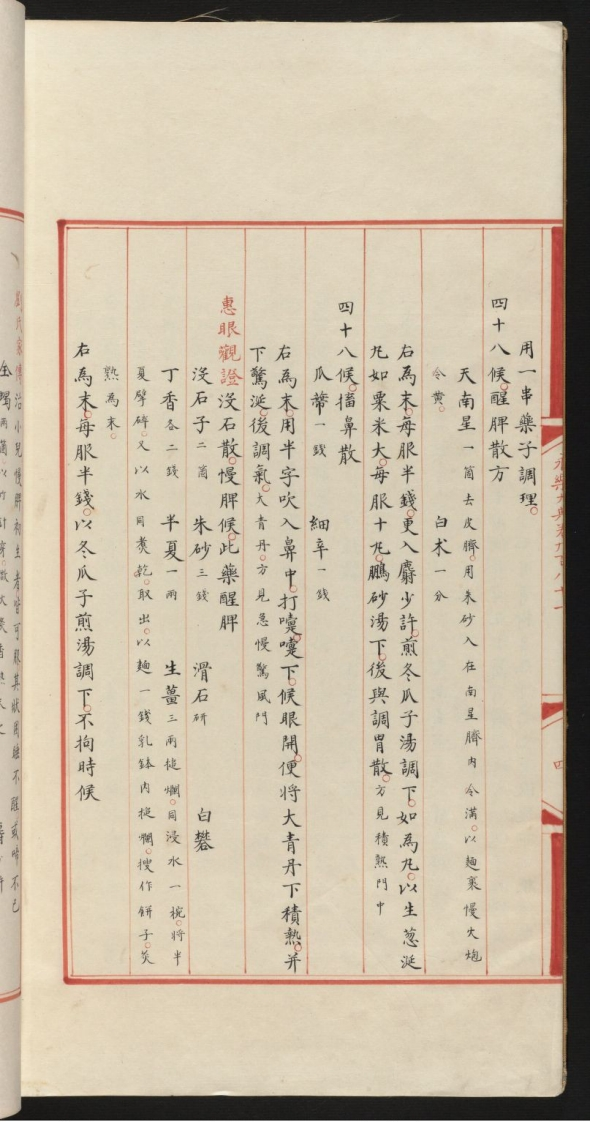 用一串藥子調理。
四十八候。醒脾散方
天南星一箇去皮臍。用朱砂入在南星臍內令滿。以麵裹慢火炮
令黃。 白术一分
右為末。每服半錢。更入麝少許。煎冬瓜子湯調下。如為丸。以生葱涎
丸如粟米大。每服十丸。鵬砂湯下。後與調胃散。方見積熱門中
四十八候。搐鼻散
瓜蒂一錢 細辛一錢
右為末。用半字吹入鼻中。打嚏。嚏下。候眼開。便將大青丹下積熱。并
下驚涎。後調氣。大青丹。方見急慢驚風門
惠眼觀證沒石散。慢脾候。此藥醒脾
沒石子二箇 朱砂三錢 滑石研 白礬
丁香各二錢 半夏一兩 生薑三兩槌爛。同浸水一椀。將半
夏擘碎。又以水同煑乾。取出。以麵一錢乳鉢內搥爛。搜作餅子。炙
熟為末。
右為末。每服半錢。以冬瓜子煎湯調下。不拘時候
永樂大典卷九百八十一
四